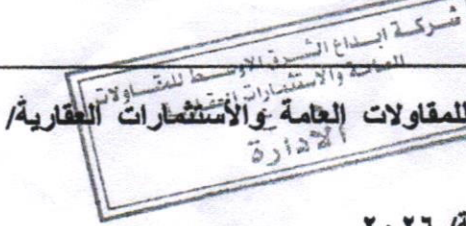 شركة ابداع الشرق الاوسط للمقاولات
العامة والاستثمارات العقارية
للمقاولات العامة والأستثمارات العقارية/
الادارة
٢٠٢٦